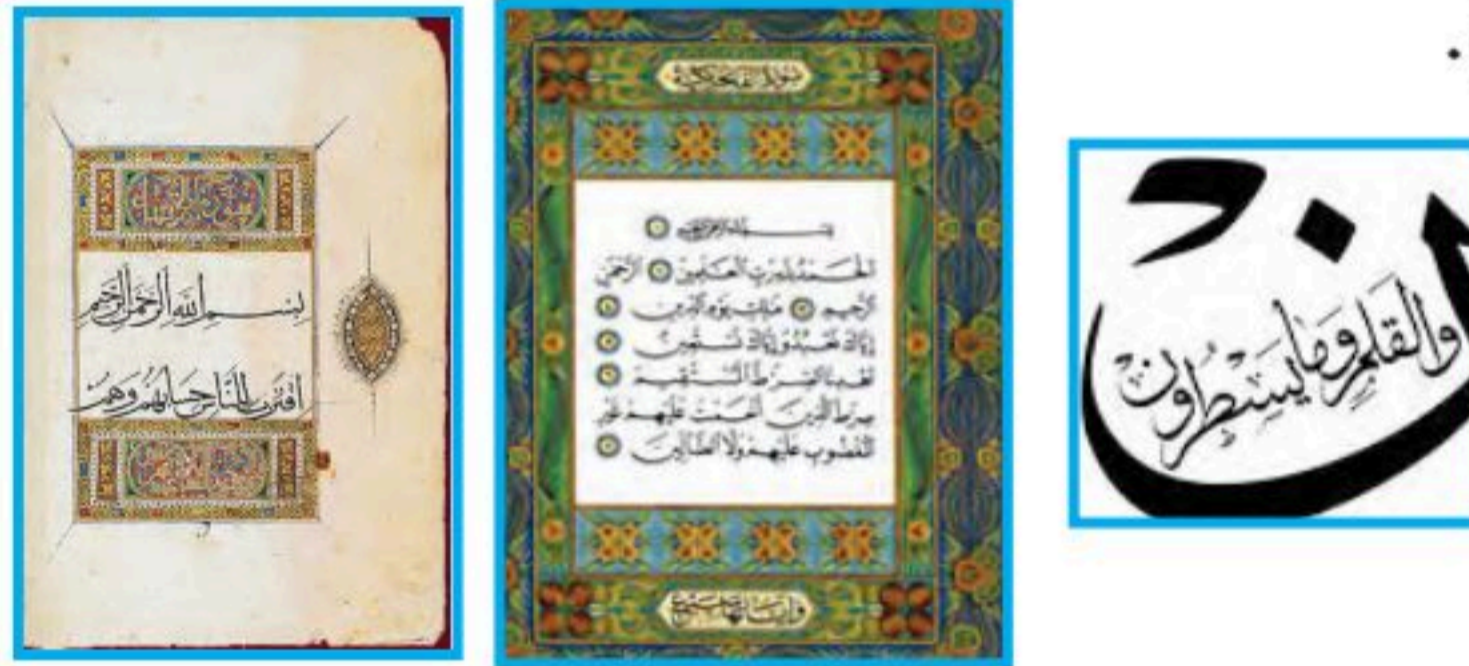 بسم الله الرحمن الرحيم
اقترب للناس حسابهم وهم
سورة الفاتحة
بسم الله الرحمن الرحيم ١
الحمد لله رب العلمين ٢ الرحمن
الرحيم ٣ ملك يوم الدين ٤
إياك نعبد وإياك نستعين ٥
اهدنا الصرط المستقيم ٦
صرط الذين أنعمت عليهم غير
المغضوب عليهم ولا الضالين ٧
وآياتها سبع
ن
والقلم وما يسطرون